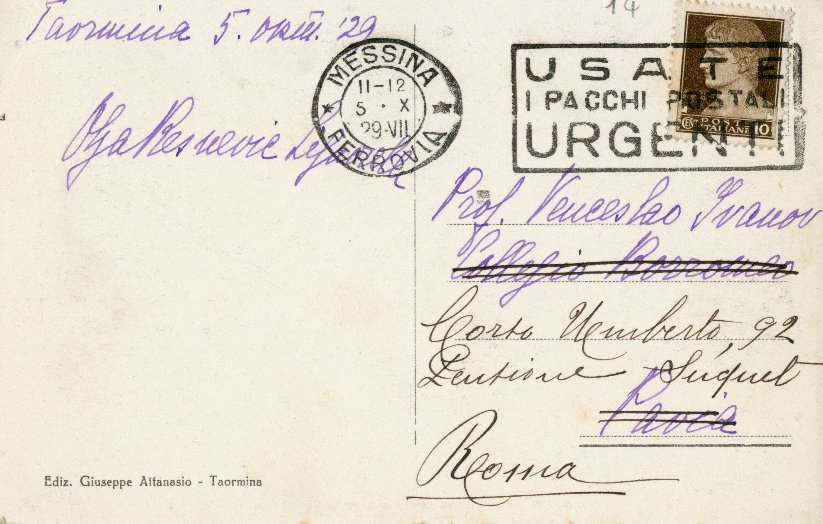 14
Taormina 5. окт. '29
MESSINA
FERROVIA
11-12
5 · X
29·VII
USATE
I PACCHI POSTALI
URGENTI
POSTE
ITALIANE 10
Olga Resnevic Signorelli
Prof. Venceslao Ivanov
Collegio Borromeo
Corso Umberto, 92
Pensione Súquet
Pavia
Roma
Ediz. Giuseppe Attanasio - Taormina